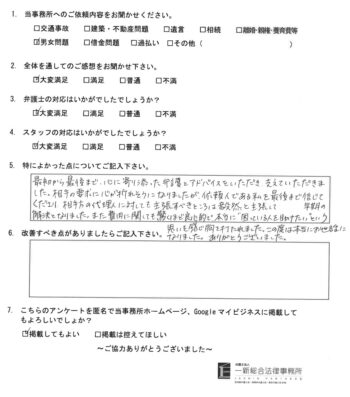 1. 当事務所へのご依頼内容をお聞かせください。
□交通事故 □建築・不動産問題 □遺言 □相続 □離婚・親権・養育費等
☑男女問題 □借金問題 □過払い □その他（ ）
2. 全体を通してのご感想をお聞かせ下さい。
☑大変満足 □満足 □普通 □不満
3. 弁護士の対応はいかがでしたでしょうか？
☑大変満足 □満足 □普通 □不満
4. スタッフの対応はいかがでしたでしょうか？
☑大変満足 □満足 □普通 □不満
5. 特によかった点についてご記入下さい。
最初から最後まで、心に寄り添った弁護とアドバイスをいただき、支えていただきま
した。相手の要求に心が折れそうになりましたが、依頼人である私を最後まで信じて
くださり、相手方の代理人に対しても主張すべきところは毅然と主張して 早期の
解決となりました。また費用に関しても驚くほど良心的で、本当に「困っている人を助けたい」という
思いを感じ胸を打たれました。この度は本当にお世話に
なりました。ありがとうございました。
6. 改善すべき点がありましたらご記入下さい。
7. こちらのアンケートを匿名で当事務所ホームページ、Googleマイビジネスに掲載して
もよろしいでしょうか？
☑掲載してもよい □掲載は控えてほしい
～ご協力ありがとうございました～
弁護士法人
一新総合法律事務所